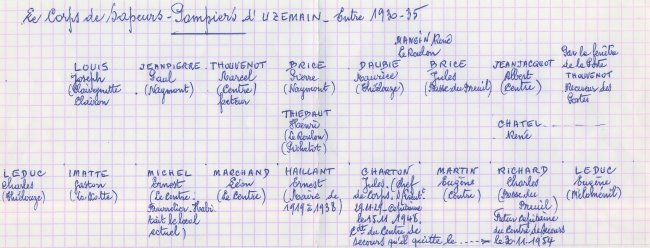 Le Corps de Sapeurs-Pompiers d'UZEMAIN - Entre 1930-35
MANGIN René
Le Roulon
LOUIS
Joseph
Clairon
JEANPIERRE
Paul
(Naymont)
THOUVENOT
Marcel
(Centre)
facteur
BRICE
Pierre
(Naymont)
DAUBIE
Maurice
(Thiélouze)
BRICE
Jules
(Basse du Preuil)
JEANJACQUOT
Albert
(Centre)
Par la fenêtre
de la Poste
THOUVENOT
Receveur des
Postes
THIEBAUT
Henri
(Le Roulon)
CHATEL
René
LEDUC
Charles
Thiélouze)
IMATTE
Gaston
(La Motte)
MICHEL
Ernest
(Le Centre.
Habi
tait le local
actuel)
MARCHAND
Léon
(Le Centre)
HAILLANT
Ernest
(Maire de
1919 à 1938)
CHARTON
Jules. (Chef
de Corps. S/Lieut.
29.11.29 - Capitaine
le 15.11.1948.
Cdt du Centre de
secours qu'il quitte le
MARTIN
Eugène
(Centre)
RICHARD
Charles
(Basse du
Preuil)
Futur Capitaine
du Centre de secours
le 30.11.1954
LEDUC
Eugène
(Méloménil)